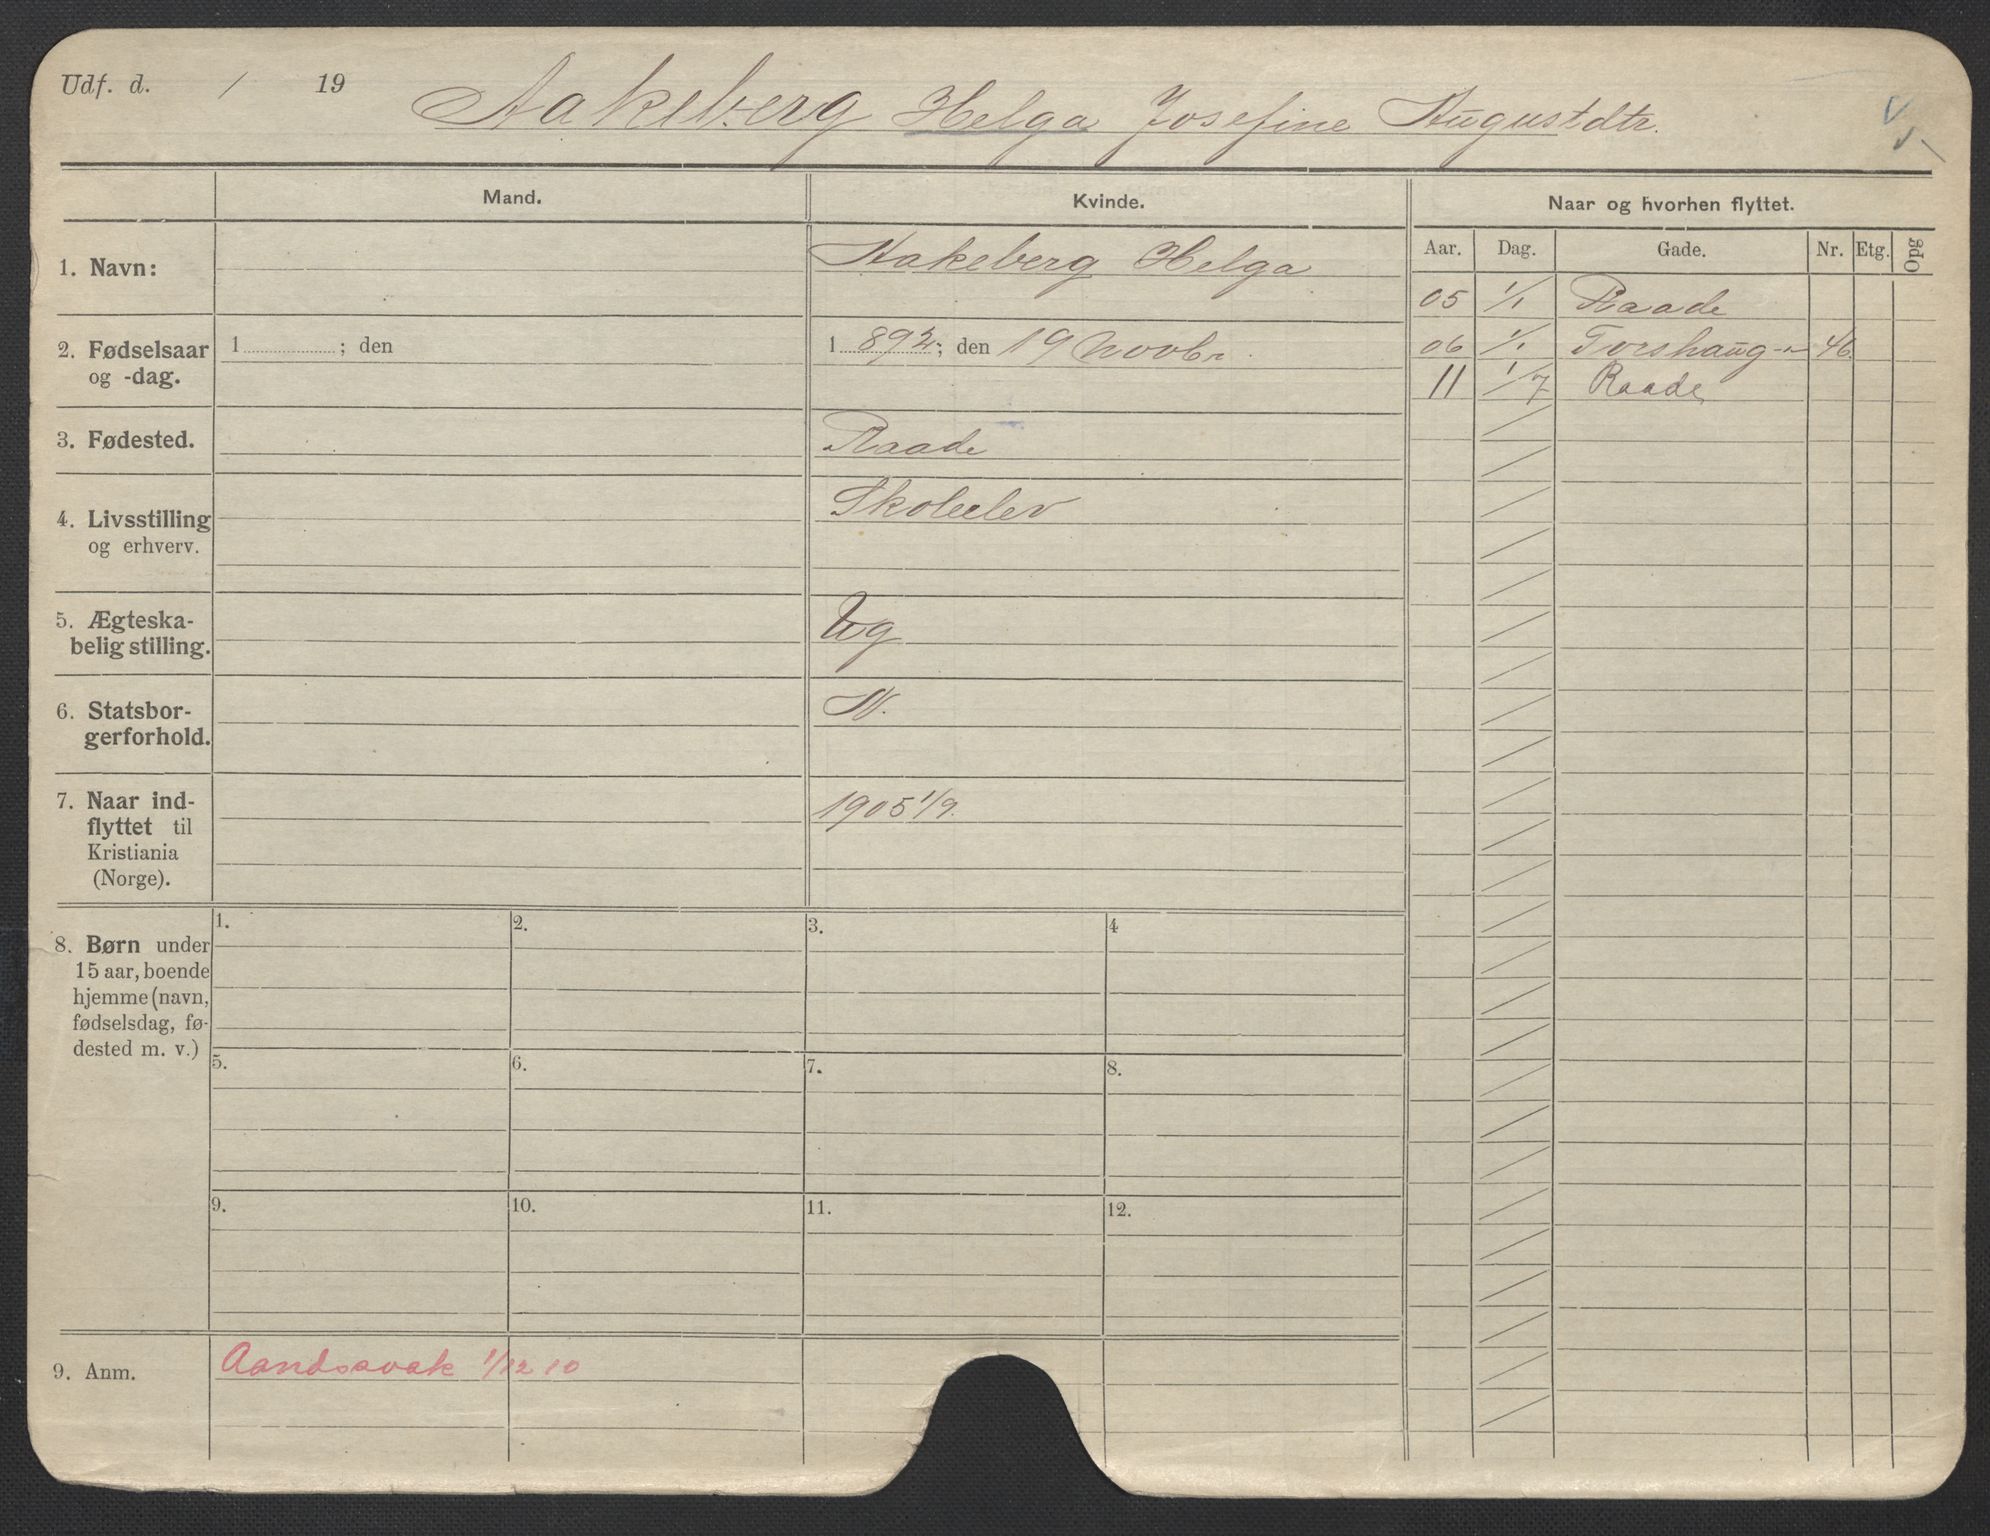 Udf. d. / 19
Aakeberg Helga Josefine Augustdtr.
Mand.
Kvinde.
Naar og hvorhen flyttet.
Aar. Dag. Gade. Nr. Etg. Opg
1. Navn:
Aakeberg Helga
05 1/1 Raade
2. Fødselsaar
og -dag.
1 ; den
1 892; den 19 Novbr.
06 1/1 Torshaug 46
11 1/7 Raade
3. Fødested.
Raade
4. Livsstilling
og erhverv.
Skoleelev
5. Ægteska-
belig stilling.
Ug
6. Statsbor-
gerforhold.
N.
7. Naar ind-
flyttet til
Kristiania
(Norge).
1905 1/9.
8. Børn under
15 aar, boende
hjemme (navn,
fødselsdag, fø-
dested m. v.)
1. 2. 3. 4
5. 6. 7. 8.
9. 10. 11. 12.
9. Anm.
Aandssvak 1/12 10